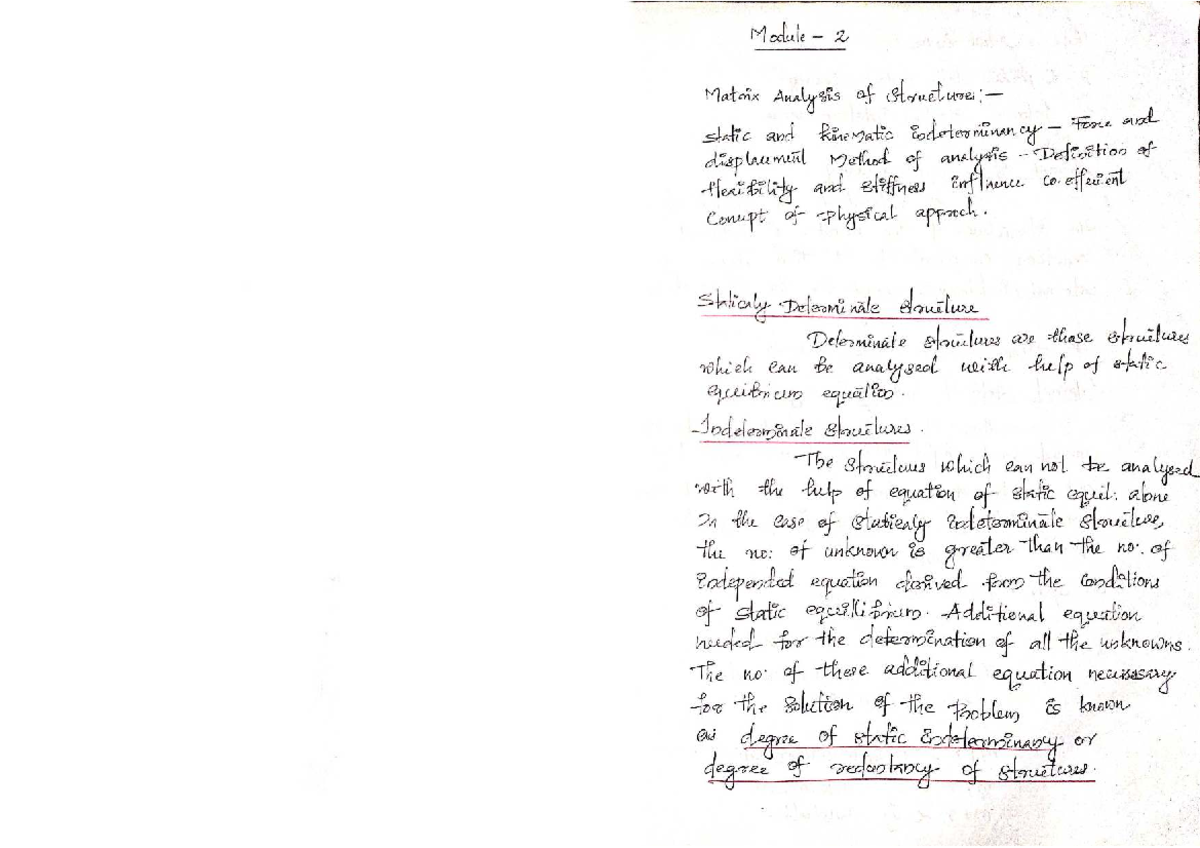 Module - 2
Matrix Analysis of structure:-
static and kinematic indeterminancy - Force and
displacement Method of analysis - Definition of
flexibility and stiffness influence co.efficient
Concept of physical approch.
Staticaly Determinate structure
Determinate structures are those structures
which can be analysed with help of static
equibrium equation.
Indeterminate structures.
The structures which can not be analysed
with the help of equation of static equil: alone
In the case of staticaly indeterminate structure,
the no: of unknown is greater than the no. of
independed equation derived from the conditions
of static equillibrium. Additional equation
needed for the determination of all the unknowns.
The no. of these additional equation necessary
for the solution of the problem is known
as degree of static indeterminancy or
degree of redontancy of structures.